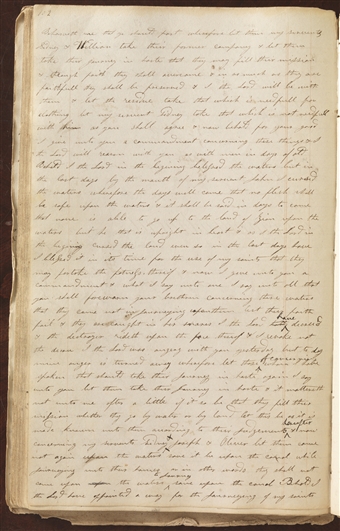 behooveth me that ye should part wherefore let them my servents
Sidney & William take their former company & let them
take their journey in haste that they may fill their mission
& through faith they shall overcome & in as much as they are
faithfull they shall be preserved & I the Lord will be with
them & let the residue take that which is needfull for
clothing let my servent Sidney take that which is not needfull
with him as ye shall agree & now behold for your good
I give unto you a commandment concerning these things & I
the Lord will reason with you as with men in days of old
Behold I the Lord in the begining blessed the waters but in
the last days by the mouth of my servent John I cursed
the waters wherefore the days will come that no flesh shall
be safe upon the waters & it shall be said in days to come
that none is able to go up to the land of Zion upon the
waters but he that is upright in heart & as I the Lord in
the begining cursed the land even so in the last days have
I blessed it in its time for the use of my saints that they
may partake the fatness thereof & now I give unto you a
commandment & what I say unto one I say unto all that
you shall forewarn your brethren concerning these waters
that they come not in journeying upon them lest their faith
fail & they are caught in her snares I the Lord have decreed
& the destroyer rideth upon the face thereof & I revoke not
the decree I the Lord was angry with you yesterday but to day
mine anger is turned away wherefore let those concerning whom I have
spoken that should take their journey in haste again I say
unto you let them take their journey in haste & it mattereth
not unto me after a little if it so be that they fill their
mission whether they go by water or by land let this be as it is
made known unto them according to their judgements hereafter & now
concerning my servents Sidney & Joseph & Oliver let them come
not again upon the waters save it be upon the canal while
journeying unto their homes or in other words they shall not
come upon the waters to journey save upon the canal Behold I
the Lord have appointed a way for the journeying of my saints